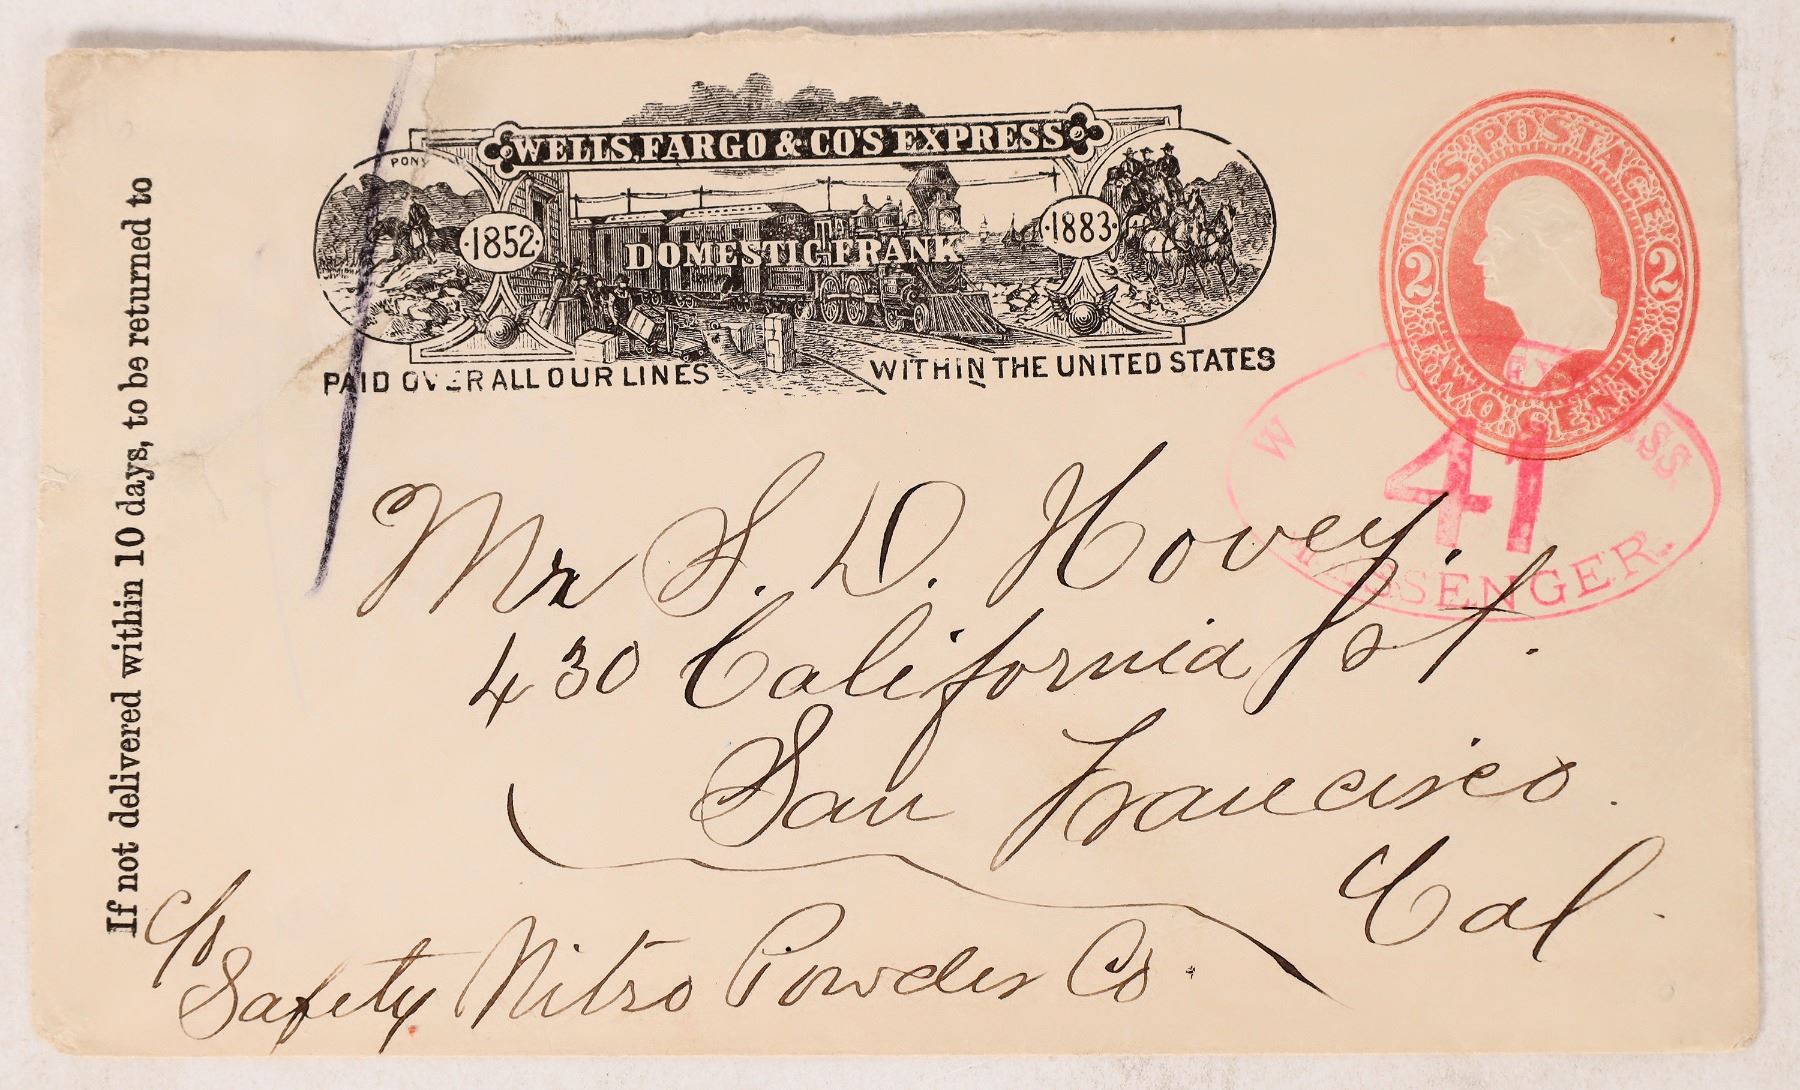 If not delivered within 10 days, to be returned to
PONY
WELLS, FARGO & CO'S EXPRESS
1852
DOMESTIC FRANK
1883
PAID OVER ALL OUR LINES
WITHIN THE UNITED STATES
U.S. POSTAGE
2 2
TWO CENTS
41
MESSENGER.
Mr S. D. Hovey.
430 California St.
San Francisco.
Cal.
c/o
Safety Nitro Powder Co.